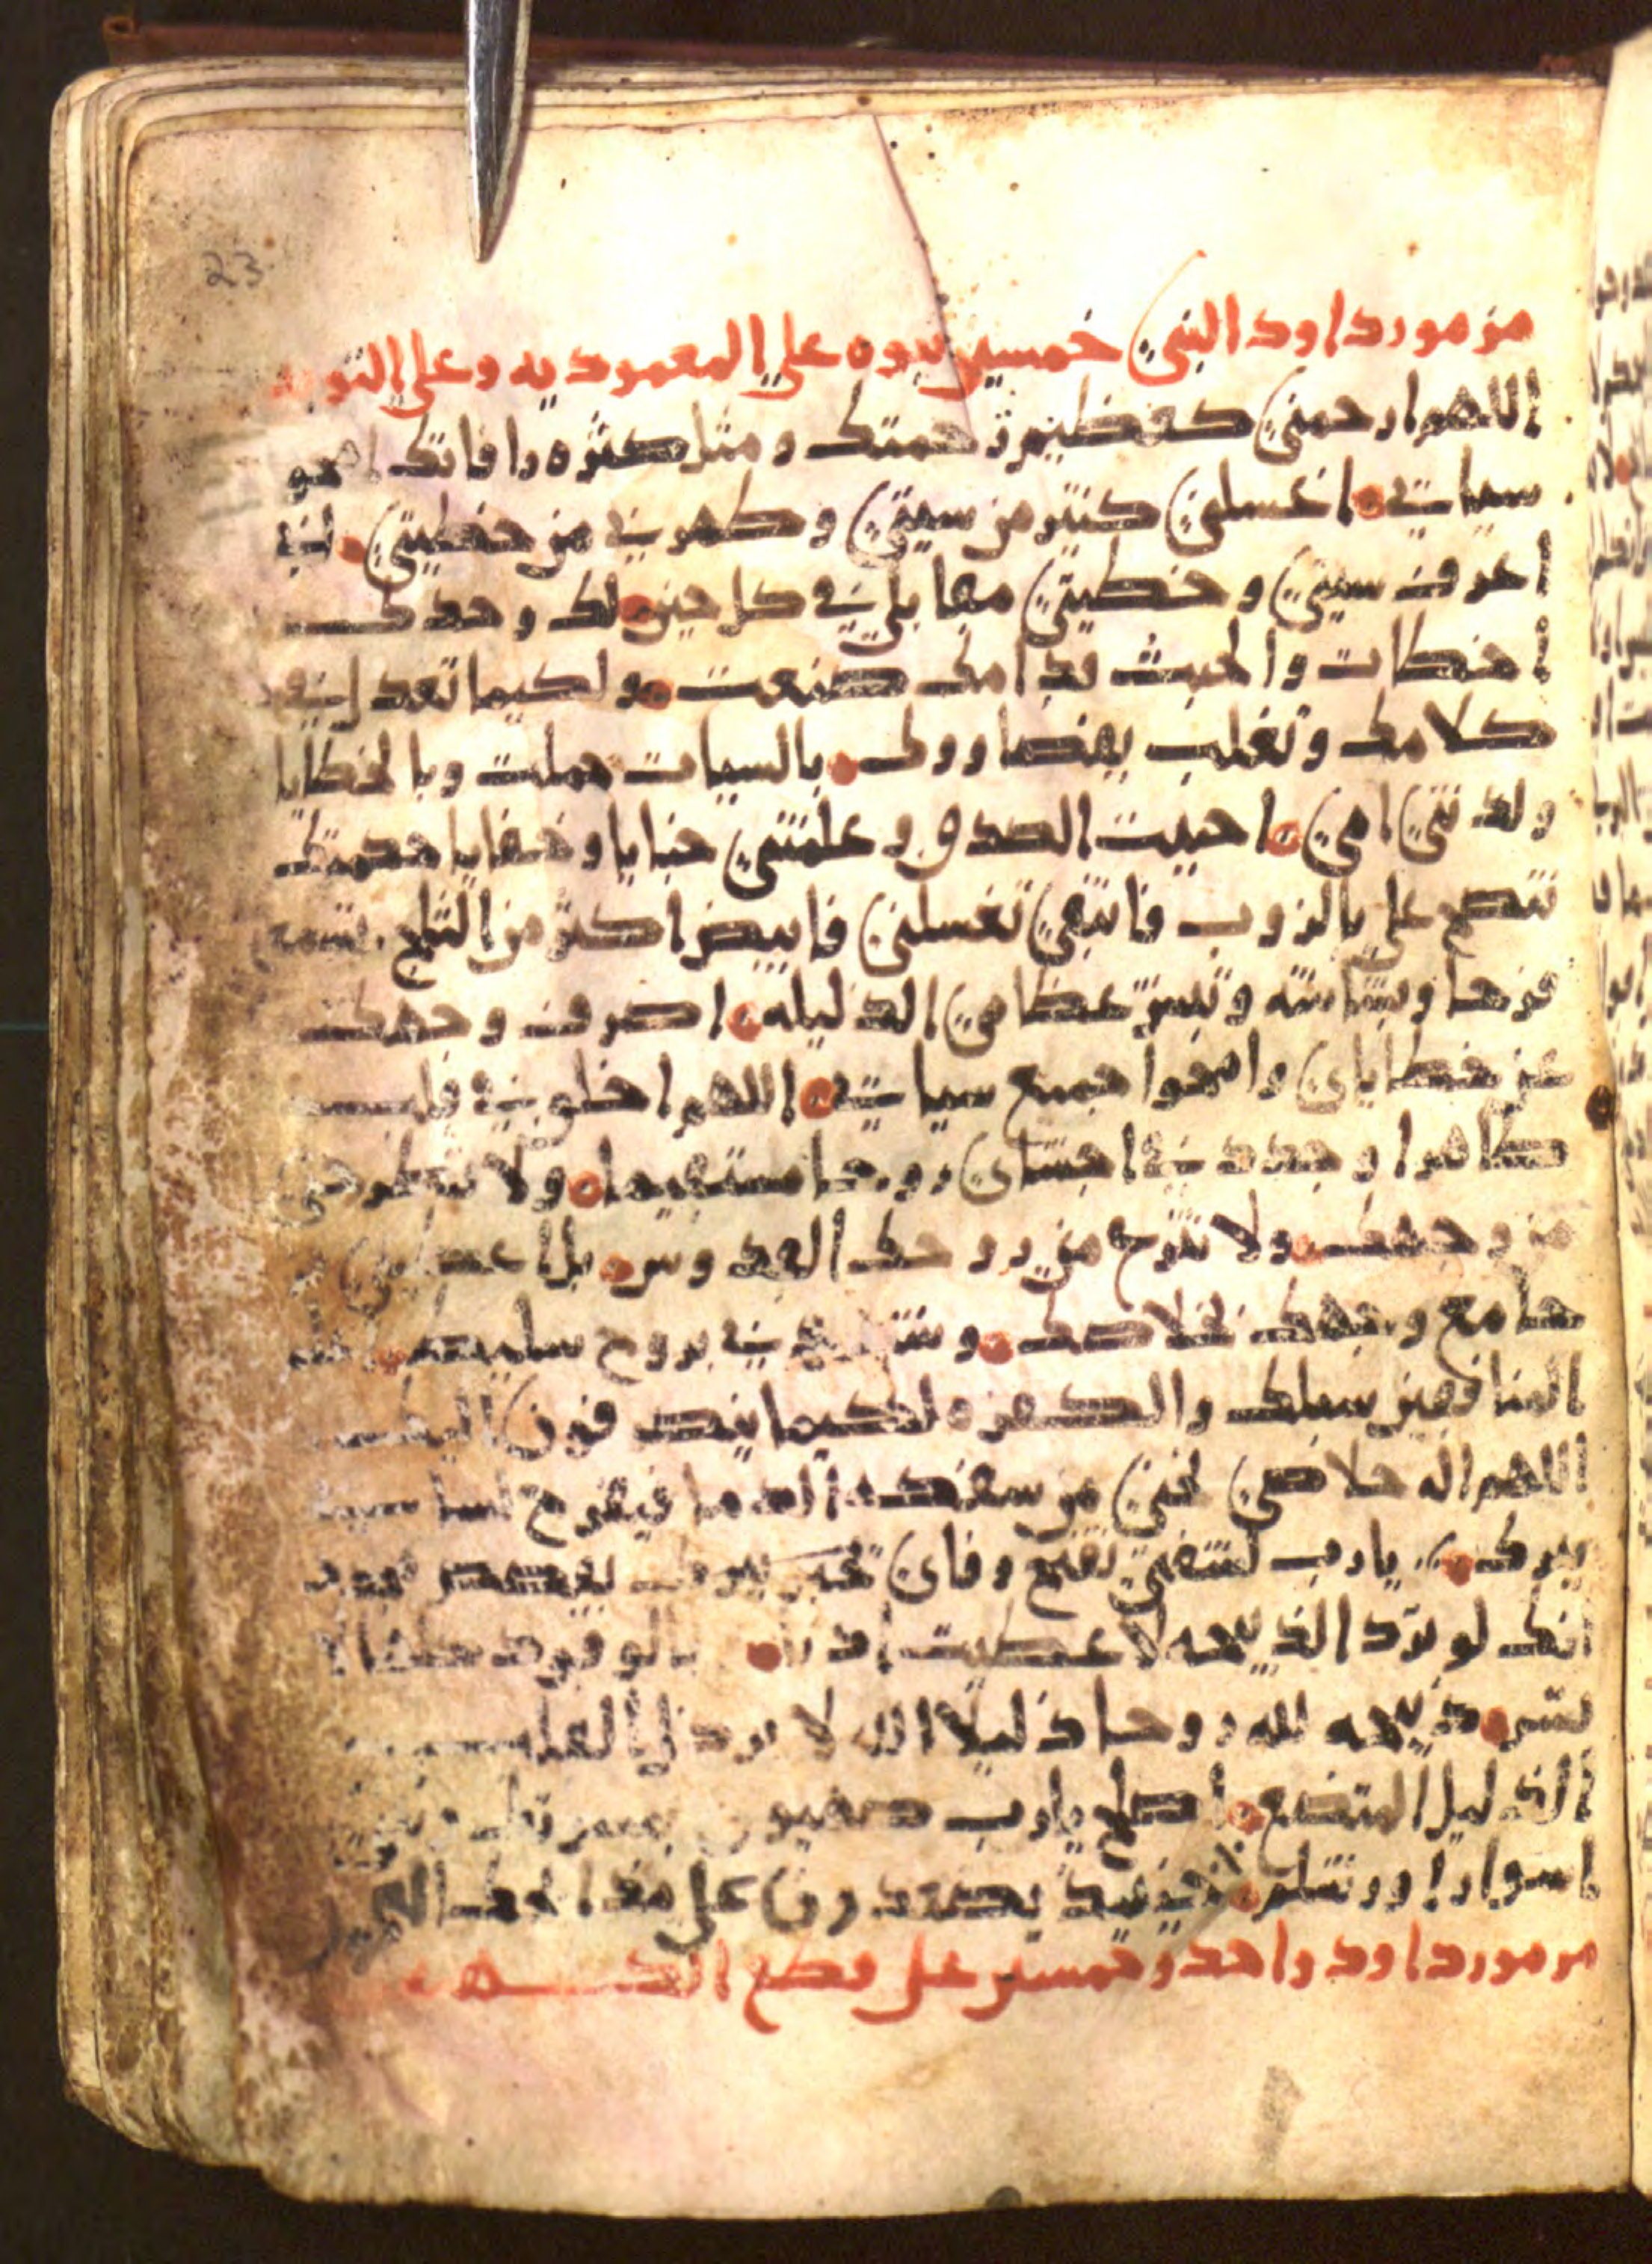 23
مزمور داود النبي خمسين نبوه علي المعموديه وعلي التوبه
اللهم ارحمني كعظيم رحمتك ومثل كثره رافاتك امحو
سياتي اغسلني كثير من سيتي وطهرني من خطيتي لني
اعرف سيتي وخطيتي مقابلي في كل حين لك وحدك
اخطات والخبث قدامك صنعت ولكيما تعدل في
كلامك وتغلب بقضاووك بالسيات حملت وبالخطايا
ولدتني امي احببت الصدق وعلمتني خبايا وخفايا حكمتك
تنضح علي بالزوب فانتقي تغسلني فابيض اكثر من الثلج تسمعه
فرحا وبشاشه وتبتز عظامي الذليله اصرف وجهك
عن خطاياي وامحوا جميع سياتي اللهم اخلق في قلب
طاهرا وجدد في احشاي روحا مستقيما ولا تطرحني
من وجهك ولا تنزح مني روحك القدوس بل اعطني
جامع وجهك خلاصك و بروح
المنافقين سبلك والكفره لكيما ينصرفون اليك
اللهم اله خلاصي نجني من سفك الدما فيفرح لساني
ببرك يارب لشفتي تفتح وفاي
انك لو ترد الذبيحه لاعطيت بالوقود
تسر ذبيحه لله روحا ذليلا الله لا يرذل القلب
الذليل المتضع اصلح يارب صهيون
اسوار اورشلم حينيذ يصعدون علي مذابحك العجول
مزمور داود واحد وخمسين علي قطع الكـــهـ